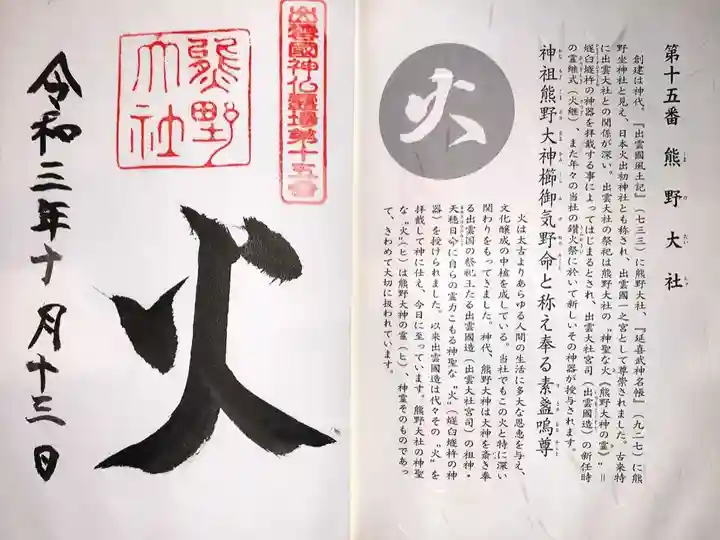 第十五番 熊野大社
創建は神代、『出雲國風土記』(七三三)に熊野大社、『延喜武神名帳』(九二七)に熊
野坐神社と見え、日本火出初神社とも称され、出雲國一之宮として尊崇されました。古来特
に出雲大社との関係が深い。出雲大社の祭祀は熊野大社の〝神聖な火《熊野大神の霊》〟=
燧臼燧杵の神器を拝戴する事によってはじまるとされ、出雲大社宮司(出雲國造)の新任時
の霊継式(火継)、また年々の当社の鑽火祭に於いて新しいその神器が授与されます。
神祖熊野大神櫛御気野命と称え奉る素盞嗚尊
火
火は太古よりあらゆる人間の生活に多大な恩恵を与え、
文化醸成の中植を成している。当社でもこの火と特に深い
関わりをもってきました。神代、熊野大神は大神を斎き奉
る出雲国の祭祀王たる出雲國造(出雲大社宮司)の祖神・
天穂日命に自らの霊力こもる神聖な〝火〟(燧臼燧杵の神
器)を授けられました。以来出雲國造は代々その〝火〟を
拝戴して神に仕え、今日に至っています。熊野大社の神聖
な〝火〟(ヒ)は熊野大神の霊(ヒ)、神霊そのものであっ
て、きわめて大切に扱われています。
出雲國神仏霊場第十五番
熊野
大社
火
令和三年十月十三日